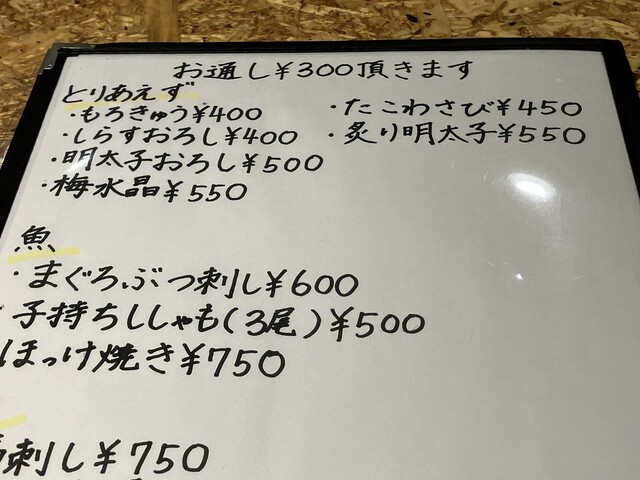 お通し¥300頂きます
とりあえず
・もろきゅう¥400
・たこわさび¥450
・しらすおろし¥400
・炙り明太子¥550
・明太子おろし¥500
・梅水晶¥550
魚
・まぐろぶつ刺し¥600
子持ちししゃも(3尾)¥500
ほっけ焼き¥750
刺し¥750